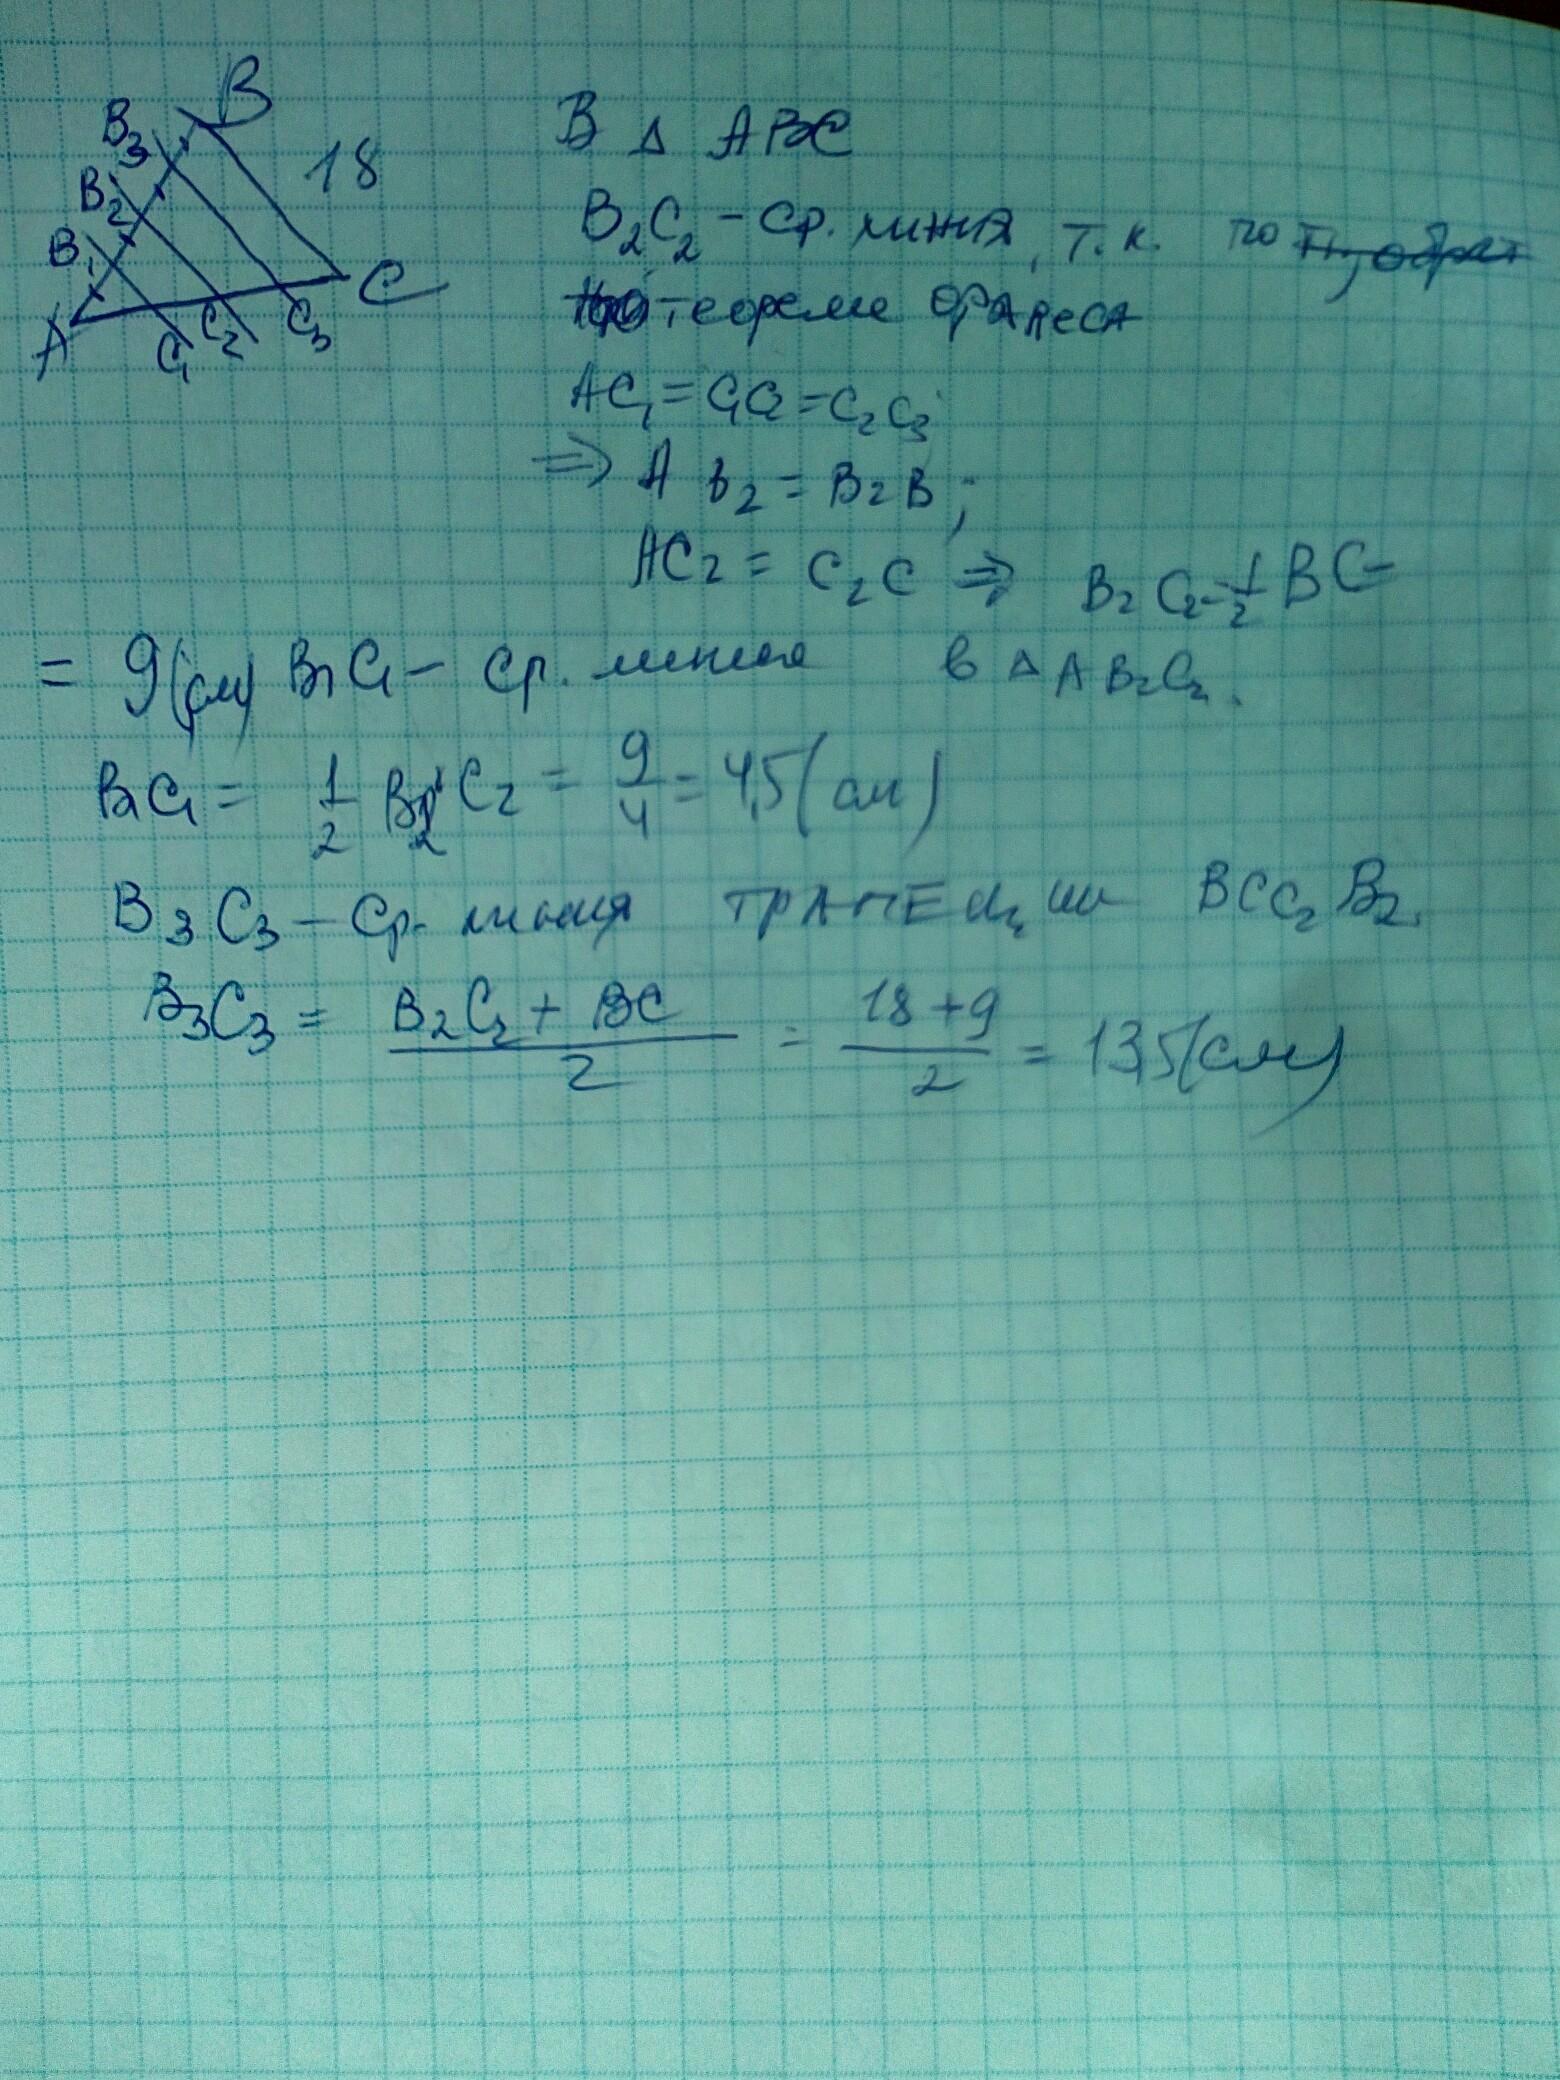 B
B₃
18
B₂
B₁
A
C
C₁ C₂ C₃
В Δ ABC
B₂C₂ - ср. линия, т.к. по
теореме Фалеса
AC₁ = C₁C₂ = C₂C₃
⇒ A B₂ = B₂B;
AC₂ = C₂C ⇒ B₂C₂ = 1/2 BC =
= 9(см) B₁C₁ - ср. линия в Δ AB₂C₂.
B₁C₁ = 1/2 B₂C₂ = 9/4 = 4,5 (см)
B₃C₃ - ср. линия трапеции BCC₂B₂.
B₃C₃ = (B₂C₂ + BC)/2 = (18+9)/2 = 13,5(см)